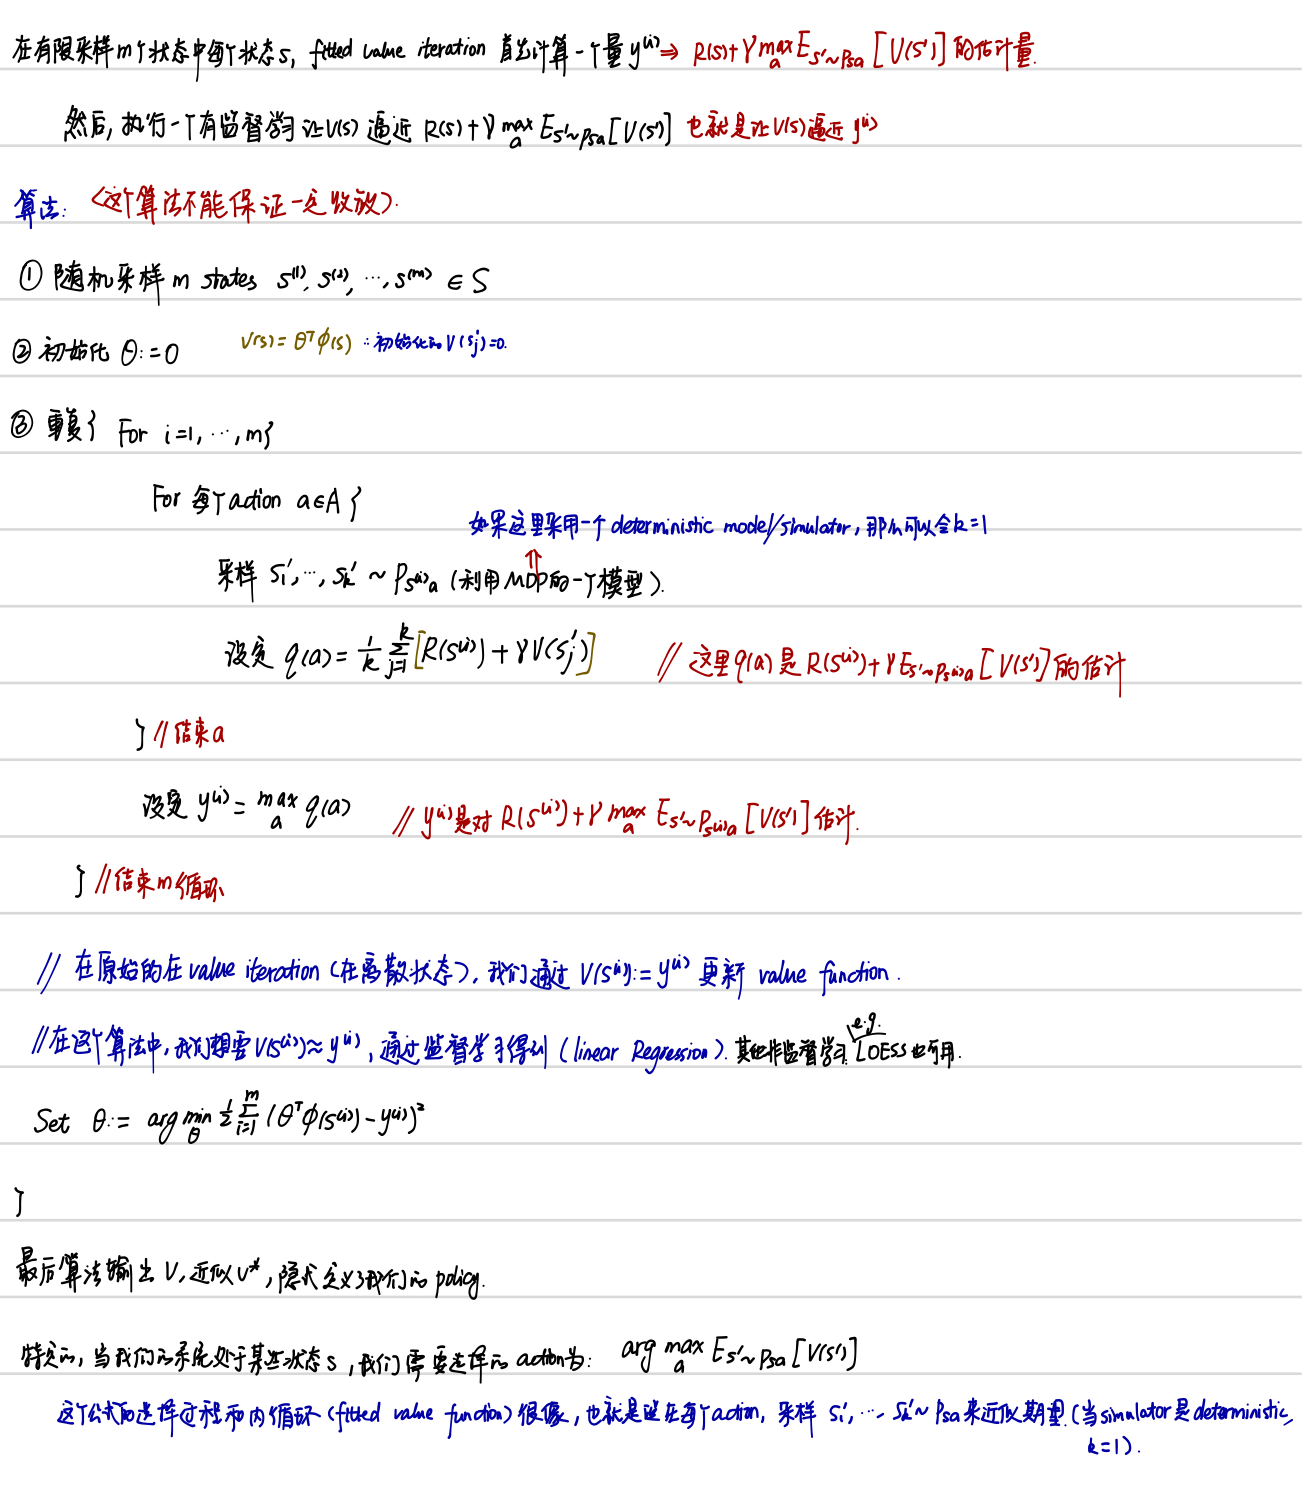 在有限采样m个状态中每个状态s, fitted value iteration 首先计算一个量 y⁽ⁱ⁾ ⇒ R(s)+γ max_a E_{s'~Psa}[V(s')] 的估计量.
然后, 执行一个有监督学习 让V(s) 逼近 R(s)+γ max_a E_{s'~Psa}[V(s')] 也就是让V(s)逼近 y⁽ⁱ⁾
算法: <这个算法不能保证一定收敛>.
① 随机采样 m states s⁽¹⁾, s⁽²⁾, ⋯, s⁽ᵐ⁾ ∈ S
② 初始化 θ:=0 V(s)=θᵀφ(s) ∴初始化的V(s'_j)=0.
③ 重复{ For i=1, ⋯, m{
For 每个action a∈A {
如果这里采用一个 deterministic model/simulator, 那么可以令k=1
采样 s₁', ⋯, s_k' ~ P_{s⁽ⁱ⁾a} (利用MDP的一个模型).
设定 q(a)= 1/k Σ_{j=1}^{k} [R(s⁽ⁱ⁾)+γV(s_j')] // 这里q(a)是 R(s⁽ⁱ⁾)+γE_{s'~P_{s⁽ⁱ⁾a}}[V(s')]的估计
} //结束a
设定 y⁽ⁱ⁾= max_a q(a) // y⁽ⁱ⁾是对 R(s⁽ⁱ⁾)+γ max_a E_{s'~P_{s⁽ⁱ⁾a}}[V(s')]估计.
} //结束m循环
// 在原始的在 value iteration (在离散状态), 我们通过 V(s⁽ⁱ⁾):=y⁽ⁱ⁾ 更新 value function.
//在这个算法中, 我们想要V(s⁽ⁱ⁾)≈y⁽ⁱ⁾, 通过监督学习得到 (linear Regression). 其他非监督学习 e.g. LOESS也可用.
Set θ:= arg min_θ 1/2 Σ_{i=1}^{m} (θᵀφ(s⁽ⁱ⁾)-y⁽ⁱ⁾)²
}
最后算法输出 V, 近似V*, 隐式定义了我们的 policy.
特定的, 当我们的系统处于某些状态s, 我们需要选择的 action为: arg max_a E_{s'~Psa}[V(s')]
这个公式的选择过程和内循环(fitted value function)很像, 也就是说在每个action, 采样 s₁', ⋯ s_k' ~ Psa 来近似期望.(当simulator是deterministic,
k=1).